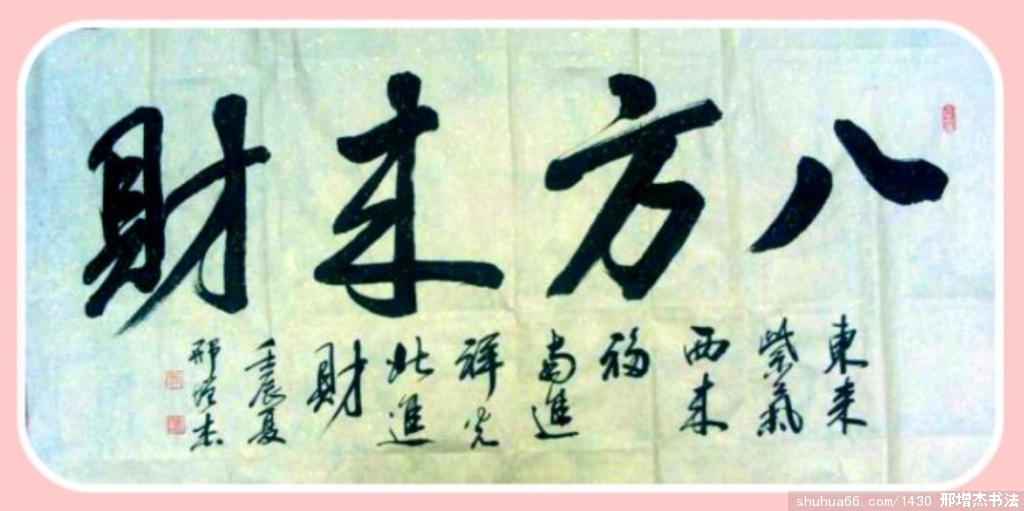 八方来財
東来
紫氣
西来
福
南進
祥光
北進
財
壬辰夏
邢增杰
shuhua66.com/1430 邢增杰书法